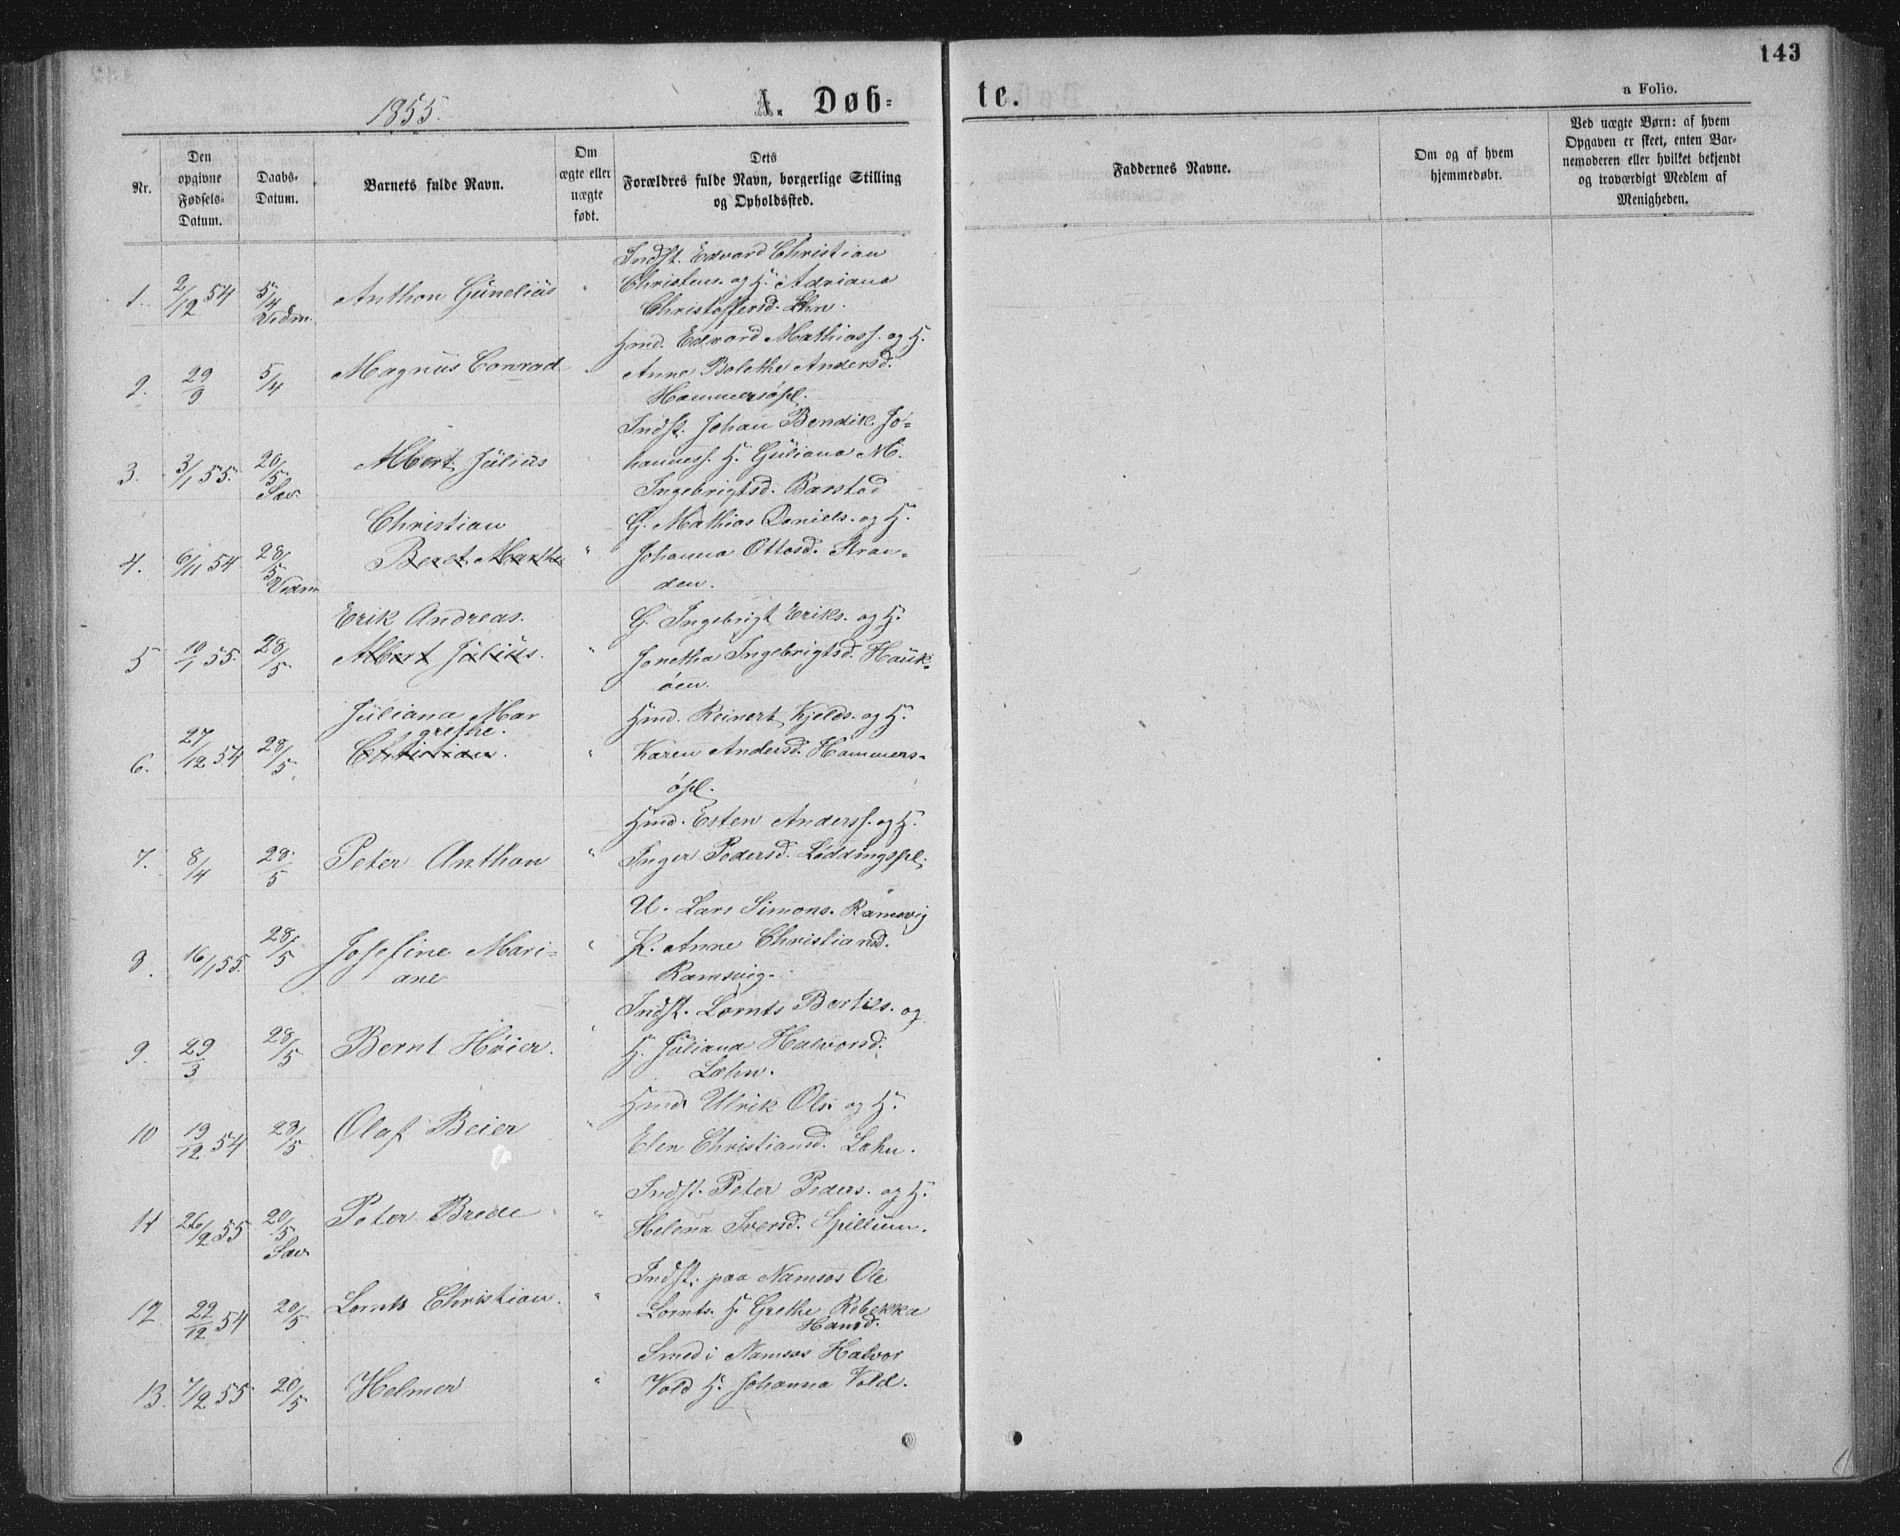 143
1855.
A. Døb-
te.
a Folio.
Nr.
Den opgivne Fødsels-Datum.
Daabs-Datum.
Barnets fulde Navn.
Om ægte eller uægte født.
Dets Forældres fulde Navn, borgerlige Stilling og Opholdssted.
Faddernes Navne.
Om og af hvem hjemmedøbt.
Ved uægte Børn: af hvem Opgaven er skeet, enten Barnemoderen eller hvilket bekjendt og troværdigt Medlem af Menigheden.
Indst. Edvard Christian
1. 2/12 54 5/4 Vedm. Anthon Günelius " Christens. og H. Adriana
Christoffersd. Lehn.
Hmd. Edvard Mathiass. og H.
2. 29/9 5/4 Magnus Conrad " Anne Bolethe Andersd.
Hammersøpl.
Indst. Johan Bendik Jo-
3. 3/1 55. 20/5 Sæv. Albert Julius hanness. H. Guliana M.
Ingebrigtsd. Barstad
Christian G. Mathias Daniels. og H.
4. 6/11 54 28/5 Vedm Beret Marthe " Johanna Ottosd. Stran-
den.
Erik Andreas. G. Ingebrigt Eriks. og H.
5 10/1 55. 28/5 Albert Julius. " Jonetha Ingebrigtsd. Hauk-
øen.
Juliana Mar Hmd. Reinert Kjelds. og H.
grethe.
6. 27/12 54 28/5 Christian. " Karen Andersd. Hammers-
øpl.
Hmd. Esten Anderss. og H.
7. 8/4 28/5 Peter Anthon " Inger Pedersd. Løddingspl.
U. Lars Simons. Ramsvig
8. 16/1 55. 28/5 Josefine Mari- " P. Anne Christiansd.
ane Ramsvig.
Indst. Lornts Bertils. og
9. 29/3 28/5 Bernt Høier. " H. Juliana Halvorsd.
Læhn.
Hmd. Ulrik Ols. og H.
10 19/12 54 28/5 Olaf Beier " Elen Christiansd. Lehn.
Indst. Peter Peders. og H.
11 26/2 55 20/5 Sæv Peter Brede " Helena Iversd. Spillum.
Indst. paa Namsos Ole
12. 22/12 54 20/5 Lornts Christian. " Lornts. H. Grethe Rebekka
Hansd.
Smed i Namsos Halvor
13. 7/2 55 20/5 Helmer " Vold H. Johanna Vold.